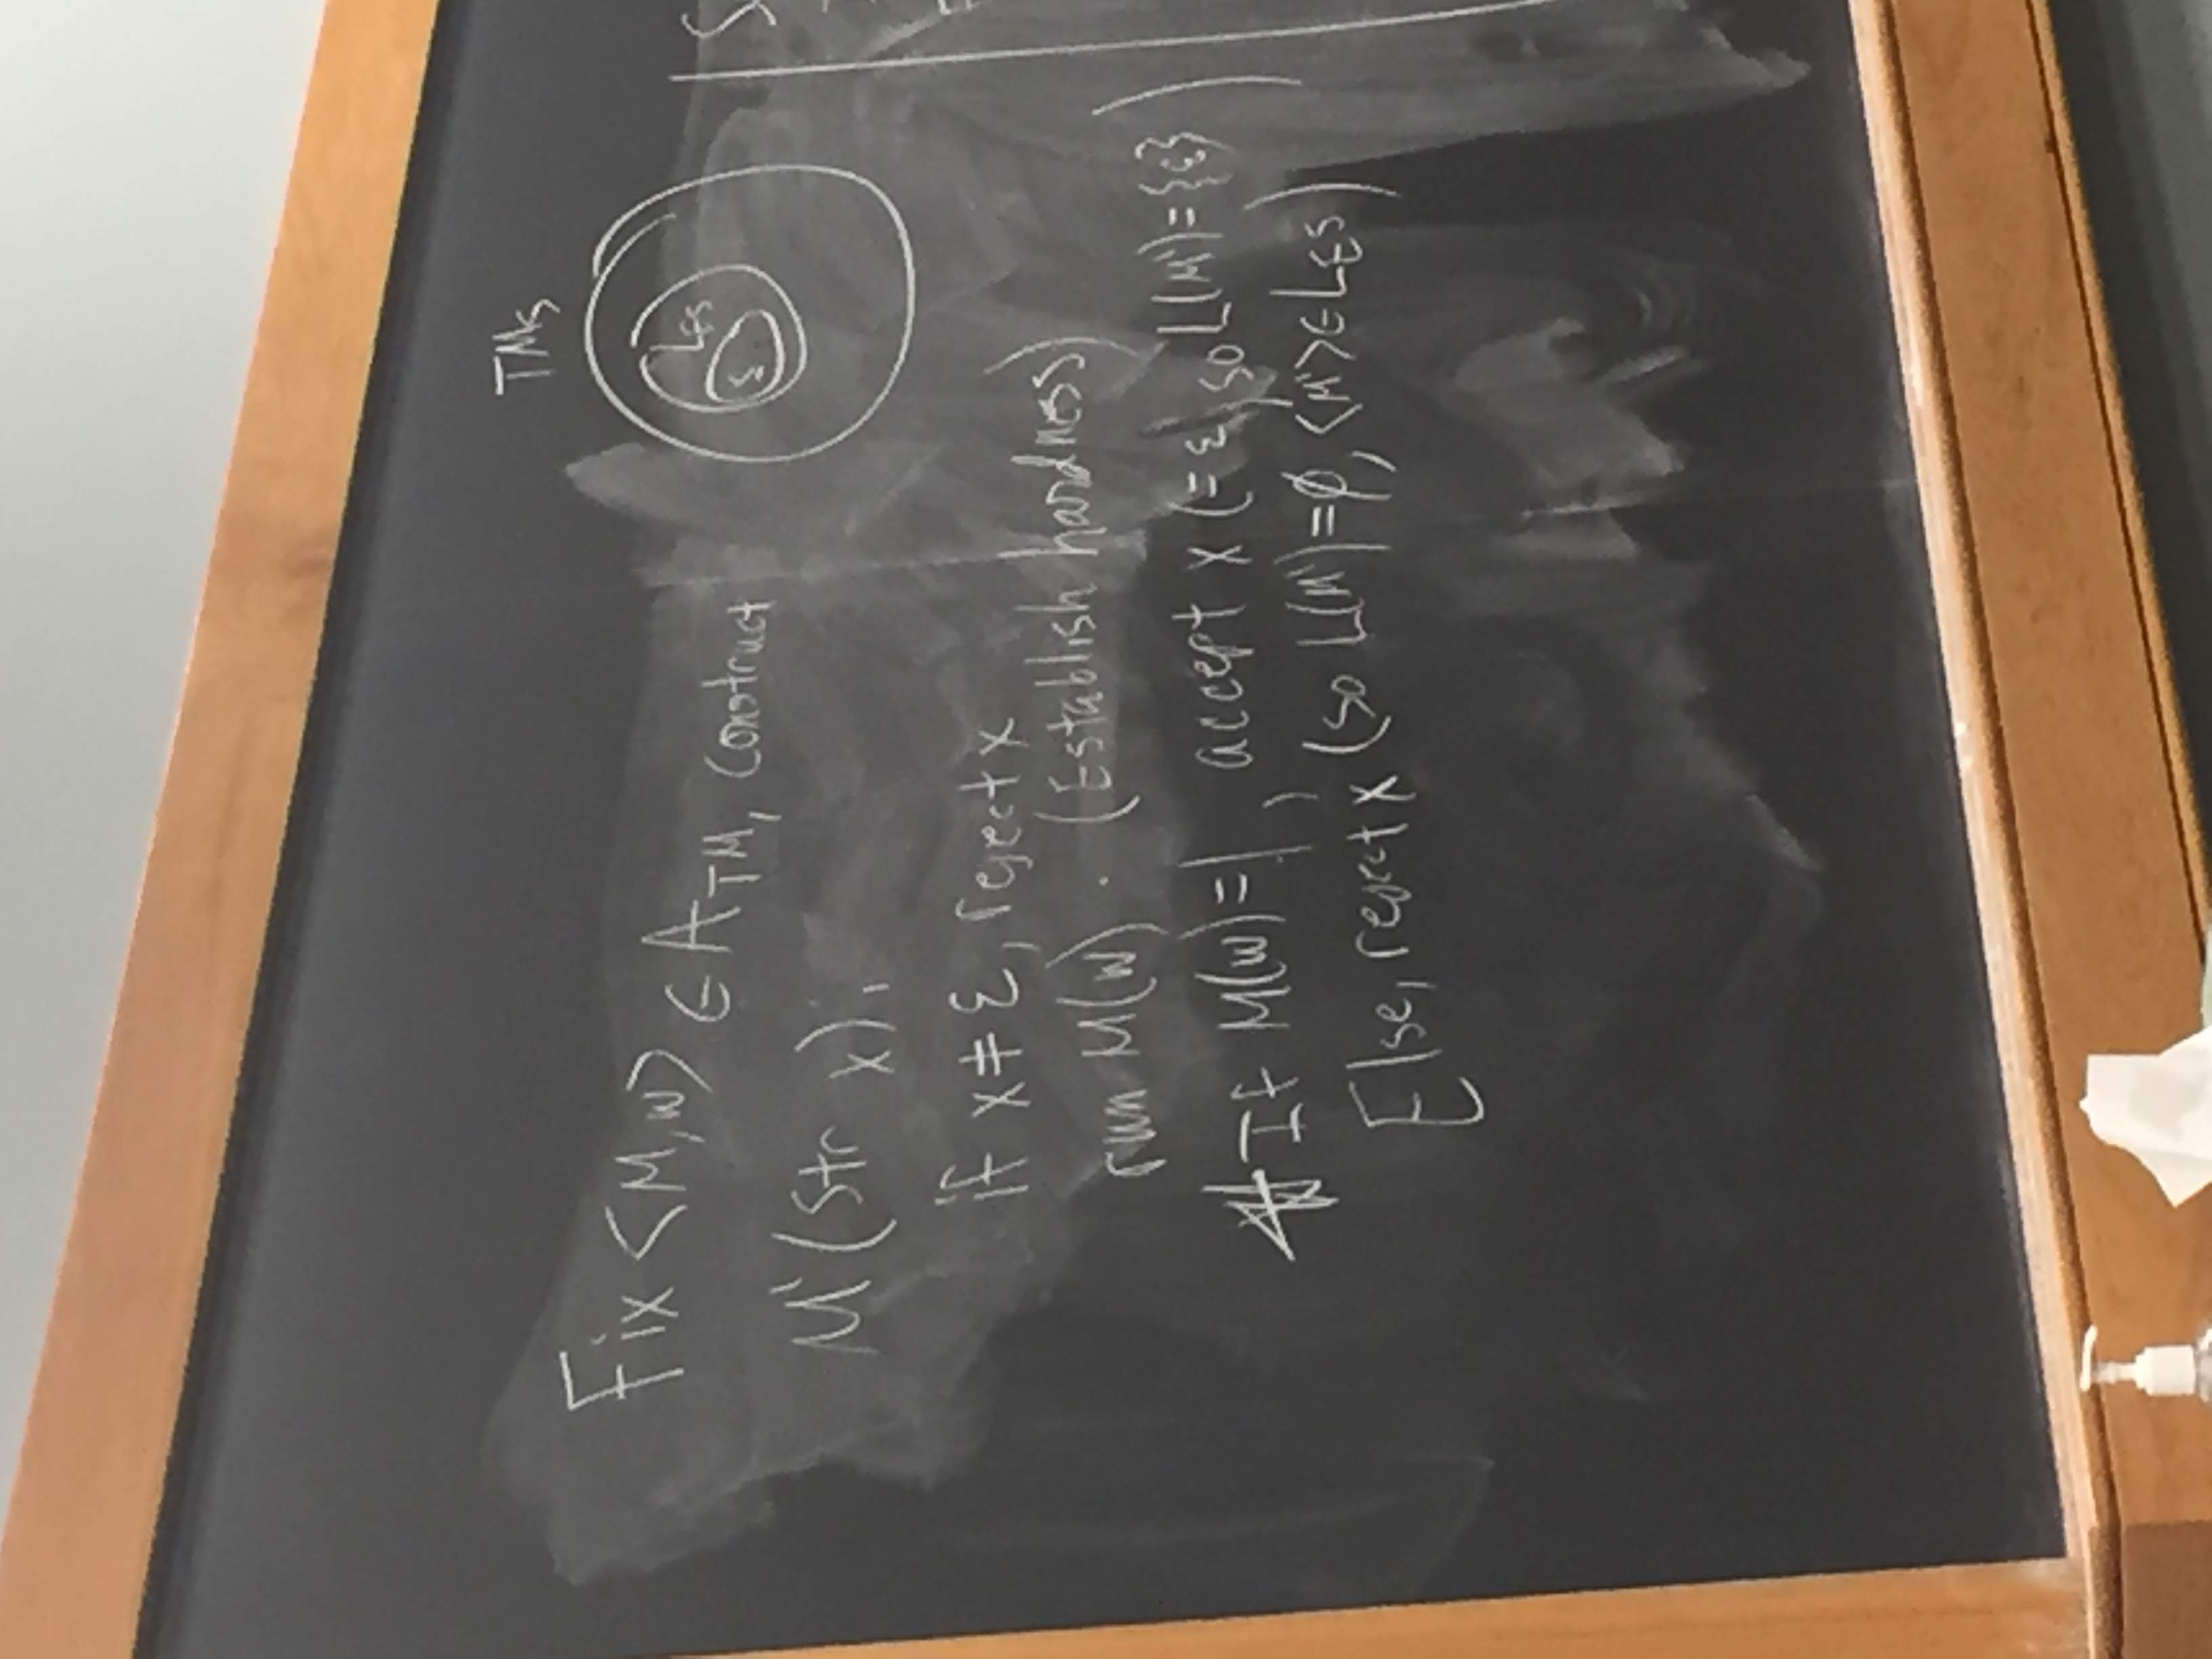 Fix <M,w> ∈ A_TM, construct
M'(Str x):
if x≠ε, reject x
run M(w). (Establish hardness)
If M(w)=1, accept x (=ε, so L(M')={ε})
Else, reject x (so L(M')=∅, <M'>∈L_ES)
TMs
L_ES
S